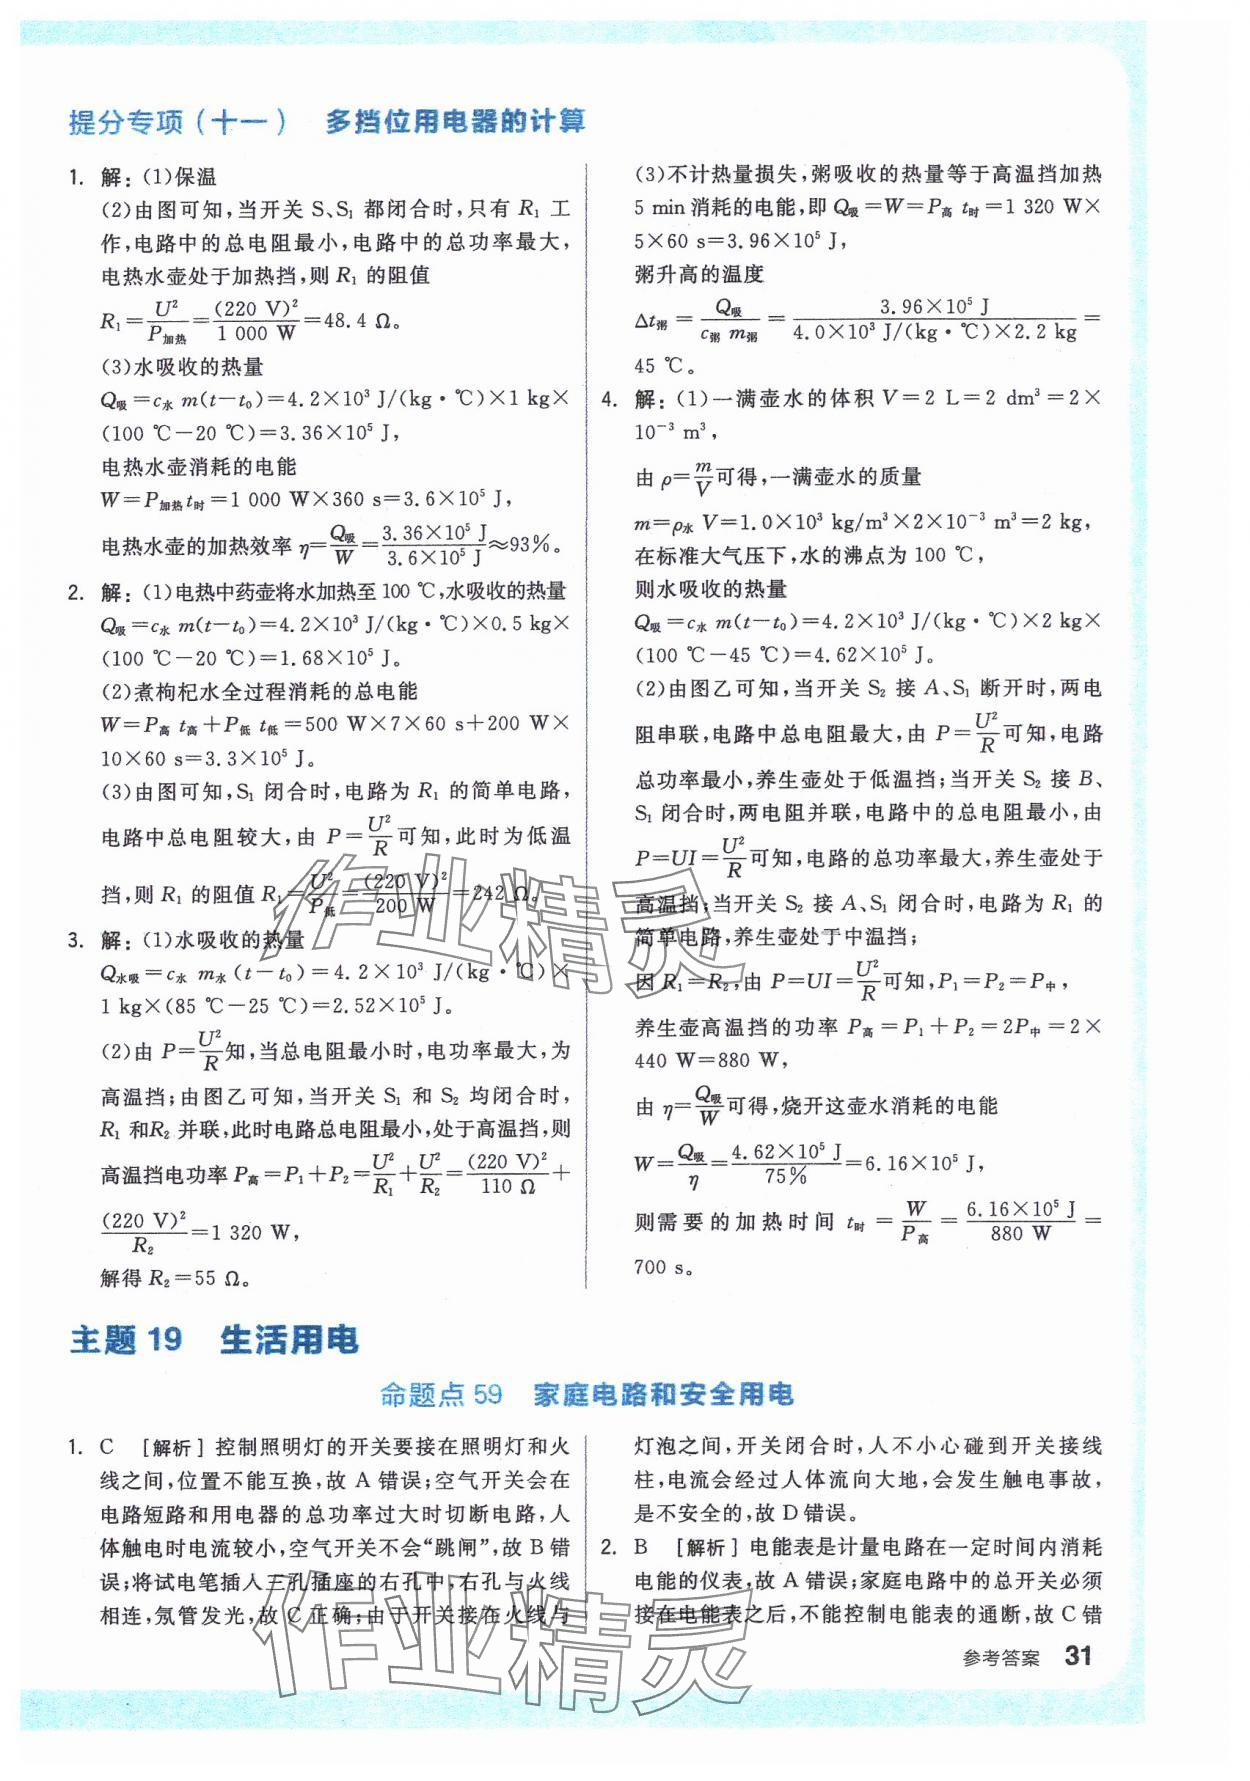 提分专项(十一) 多挡位用电器的计算
1. 解:(1)保温
(2)由图可知,当开关 S、S₁ 都闭合时,只有 R₁ 工
作,电路中的总电阻最小,电路中的总功率最大,
电热水壶处于加热挡,则 R₁ 的阻值
R₁=U²/P加热=(220 V)²/1 000 W=48.4 Ω。
(3)水吸收的热量
Q吸=c水 m(t-t₀)=4.2×10³ J/(kg·℃)×1 kg×
(100 ℃-20 ℃)=3.36×10⁵ J,
电热水壶消耗的电能
W=P加热t时=1 000 W×360 s=3.6×10⁵ J,
电热水壶的加热效率 η=Q吸/W=3.36×10⁵ J/3.6×10⁵ J≈93%。
2. 解:(1)电热中药壶将水加热至 100 ℃,水吸收的热量
Q吸=c水 m(t-t₀)=4.2×10³ J/(kg·℃)×0.5 kg×
(100 ℃-20 ℃)=1.68×10⁵ J。
(2)煮枸杞水全过程消耗的总电能
W=P高 t高+P低 t低=500 W×7×60 s+200 W×
10×60 s=3.3×10⁵ J。
(3)由图可知,S₁ 闭合时,电路为 R₁ 的简单电路,
电路中总电阻较大,由 P=U²/R可知,此时为低温
挡,则 R₁ 的阻值 R₁=U²/P低=(220 V)²/200 W=242 Ω。
3. 解:(1)水吸收的热量
Q水吸=c水 m水(t-t₀)=4.2×10³ J/(kg·℃)×
1 kg×(85 ℃-25 ℃)=2.52×10⁵ J。
(2)由 P=U²/R知,当总电阻最小时,电功率最大,为
高温挡;由图乙可知,当开关 S₁ 和 S₂ 均闭合时,
R₁ 和R₂ 并联,此时电路总电阻最小,处于高温挡,则
高温挡电功率 P高=P₁+P₂=U²/R₁+U²/R₂=(220 V)²/110 Ω+
(220 V)²/R₂=1 320 W,
解得 R₂=55 Ω。
(3)不计热量损失,粥吸收的热量等于高温挡加热
5 min 消耗的电能,即 Q吸=W=P高 t时=1 320 W×
5×60 s=3.96×10⁵ J,
粥升高的温度
Δt粥=Q吸/c粥 m粥=3.96×10⁵ J/4.0×10³ J/(kg·℃)×2.2 kg=
45 ℃。
4. 解:(1)一满壶水的体积 V=2 L=2 dm³=2×
10⁻³ m³,
由 ρ=m/V可得,一满壶水的质量
m=ρ水 V=1.0×10³ kg/m³×2×10⁻³ m³=2 kg,
在标准大气压下,水的沸点为 100 ℃,
则水吸收的热量
Q吸=c水 m(t-t₀)=4.2×10³ J/(kg·℃)×2 kg×
(100 ℃-45 ℃)=4.62×10⁵ J。
(2)由图乙可知,当开关 S₂ 接 A、S₁ 断开时,两电
阻串联,电路中总电阻最大,由 P=U²/R可知,电路
总功率最小,养生壶处于低温挡;当开关 S₂ 接 B、
S₁ 闭合时,两电阻并联,电路中的总电阻最小,由
P=UI=U²/R可知,电路的总功率最大,养生壶处于
高温挡;当开关 S₂ 接 A、S₁ 闭合时,电路为 R₁ 的
简单电路,养生壶处于中温挡;
因 R₁=R₂,由 P=UI=U²/R可知,P₁=P₂=P中,
养生壶高温挡的功率 P高=P₁+P₂=2P中=2×
440 W=880 W,
由 η=Q吸/W可得,烧开这壶水消耗的电能
W=Q吸/η=4.62×10⁵ J/75%=6.16×10⁵ J,
则需要的加热时间 t时=W/P高=6.16×10⁵ J/880 W=
700 s。
主题 19 生活用电
命题点 59 家庭电路和安全用电
1. C [解析]控制照明灯的开关要接在照明灯和火
线之间,位置不能互换,故 A 错误;空气开关会在
电路短路和用电器的总功率过大时切断电路,人
体触电时电流较小,空气开关不会“跳闸”,故 B 错
误;将试电笔插入三孔插座的右孔中,右孔与火线
相连,氖管发光,故 C 正确;由于开关接在火线与
灯泡之间,开关闭合时,人不小心碰到开关接线
柱,电流会经过人体流向大地,会发生触电事故,
是不安全的,故 D 错误。
2. B [解析]电能表是计量电路在一定时间内消耗
电能的仪表,故 A 错误;家庭电路中的总开关必须
接在电能表之后,不能控制电能表的通断,故 C 错
参考答案 31
作业精灵
作业精灵